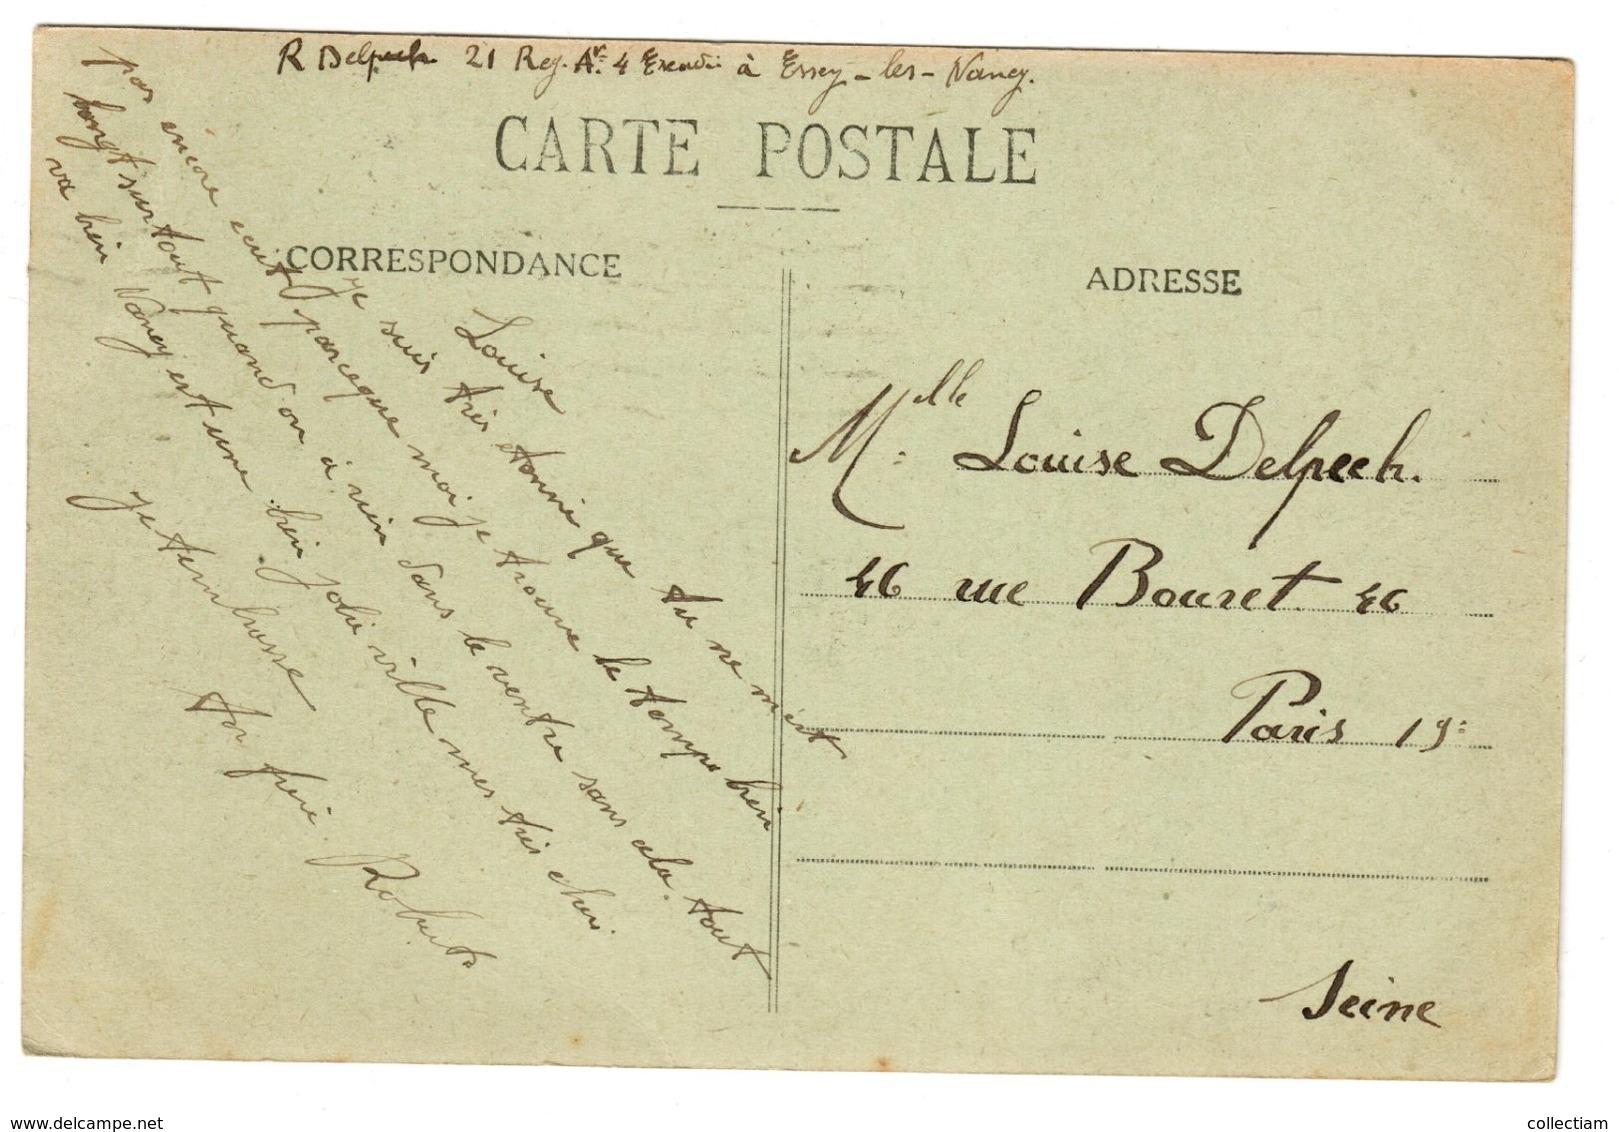 R Delpech 21 Reg. Av. 4 Escadrie à Essey-les-Nancy.
CARTE POSTALE
CORRESPONDANCE
Louise
je suis très étonné que tu ne m'ecrit
pas encore ecrit parceque moi je trouve le temps bien
long et surtout quand on à rien dans le ventre sans cela tout
va bien Nancy est une bien jolie ville mes très cher
Je t'embrasse
ton frère.
Robert
ADRESSE
Mlle Louise Delpech.
46 rue Bouret 46
Paris 19e
Seine
delcampe.net
collectiam